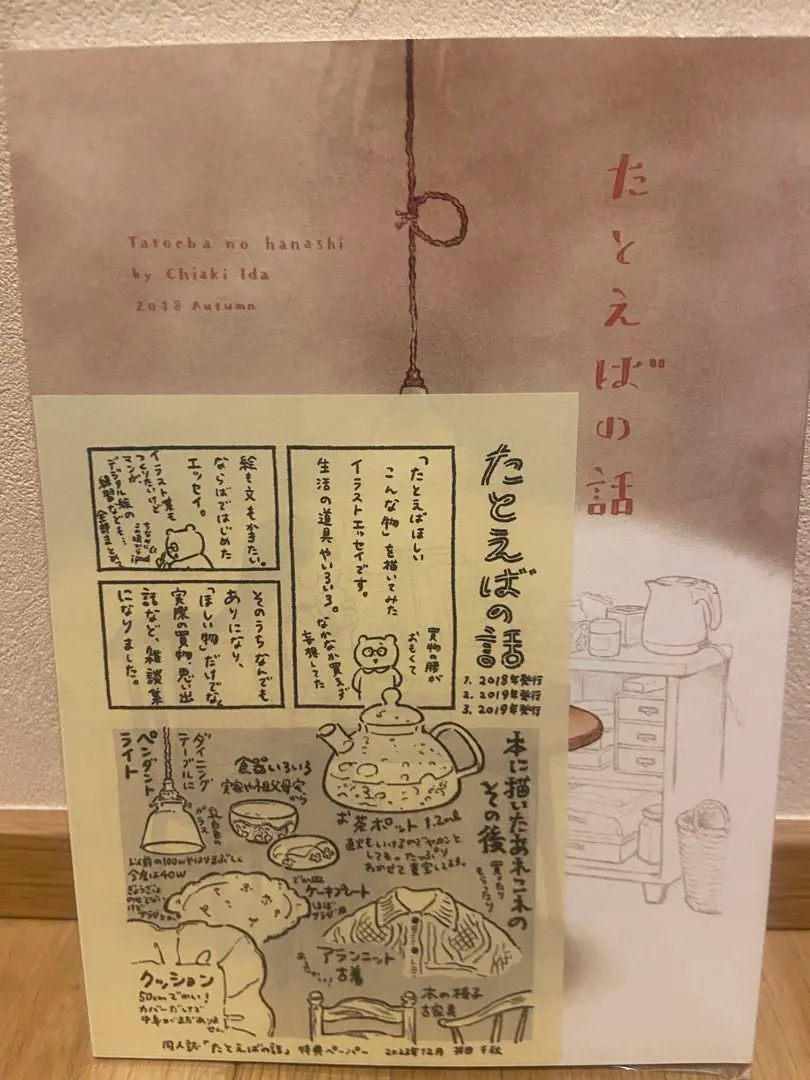 Tatoeba no hanashi
by Chiaki Ida
2018 Autumn
たとえばの話
たとえばの話
1. 2018年発行
2. 2019年発行
3. 2019年発行
「たとえばほしい
こんな物」を描いてみた
イラストエッセイです。
生活の道具やいろいろ。
買物の腰が
おもくて
なかなか買えず
妄想してた
絵も文もかきたい。
ならばではじめた
エッセイ。
イラスト集も
つくりたいけど
マンガ、
デジタル絵の
練習なども…
全部まとめ。
そのうちなんでも
ありになり、
「ほしい物」だけでなく
実際の買物、思い出
話など、雑談集
になりました。
本に描いたあれこれの
その後
買ったり
もらったり
お茶ポット 1.2ml
直火もいけるのでヤカンと
しても。たっぷり
わかせて重宝してます。
食器いろいろ
実家や祖父母宅
から
ダイニング
テーブルに
ペンダント
ライト
乳白色の
ガラス
以前の100Wやはりまぶしく
今度は40W
ケーキプレート
アランニット
古着
クッション
50cmでかい!
カバーだけで
中身がまだありません
木の椅子
古家具
同人誌「たとえばの話」特典ペーパー 2023年12月 井田千秋